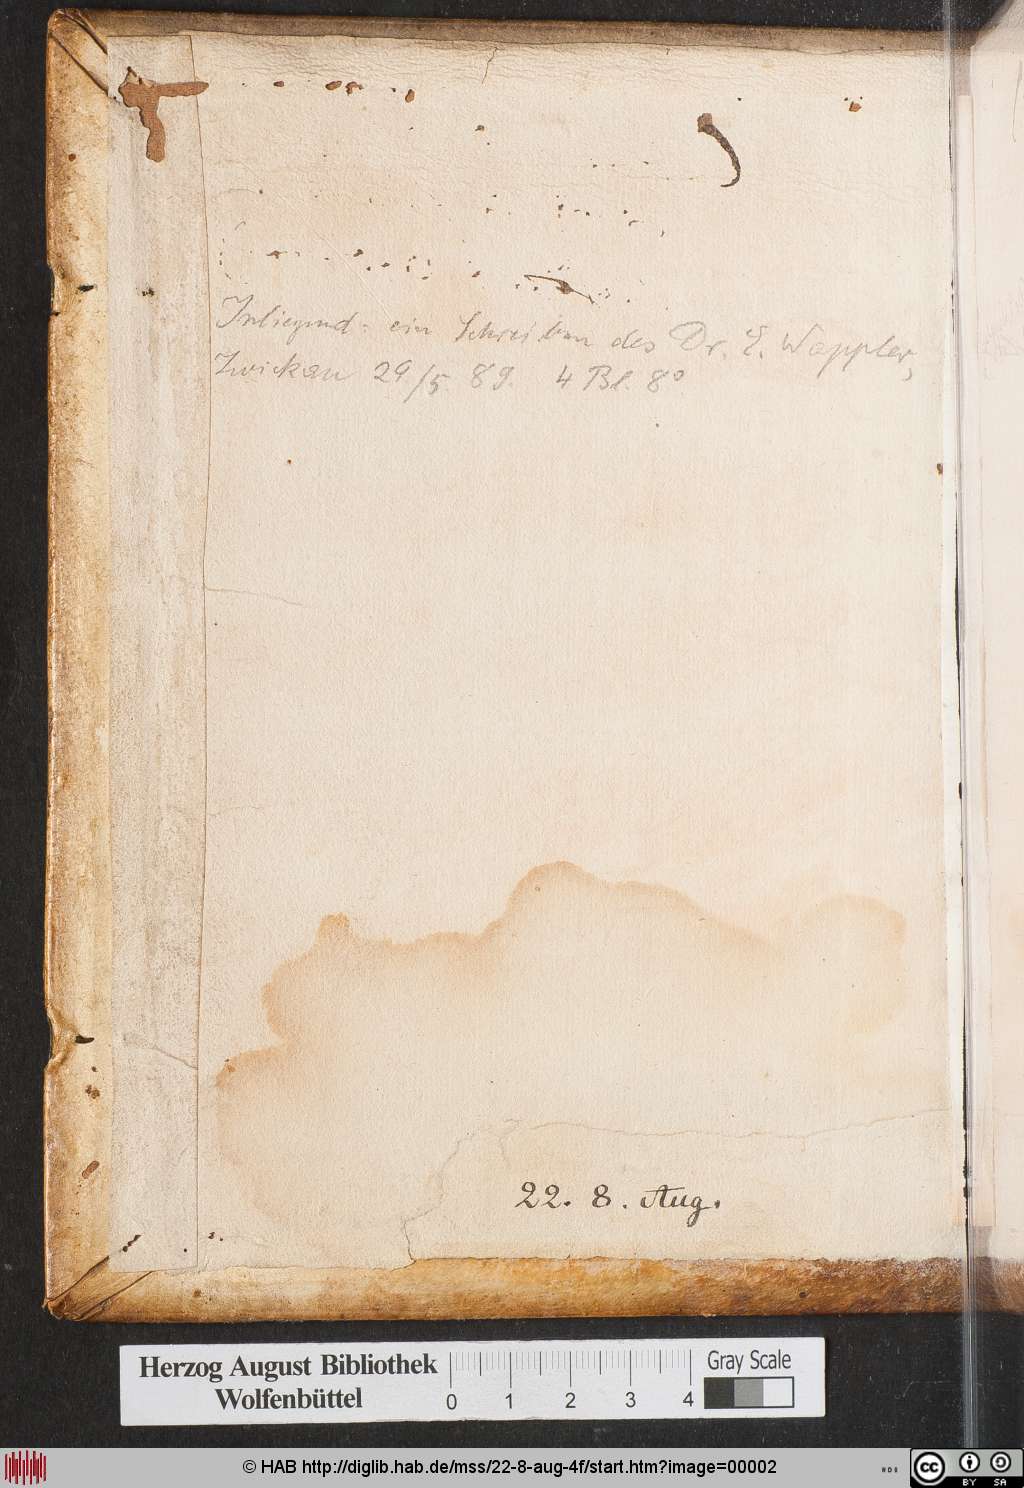 Inliegend: ein Schreiben des Dr. E. Wappler,
Zwickau 29/5. 89. 4 Bl. 8°
22. 8. Aug.
Herzog August Bibliothek
Wolfenbüttel
0 1 2 3 4
Gray Scale
© HAB http://diglib.hab.de/mss/22-8-aug-4f/start.htm?image=00002
cc BY SA